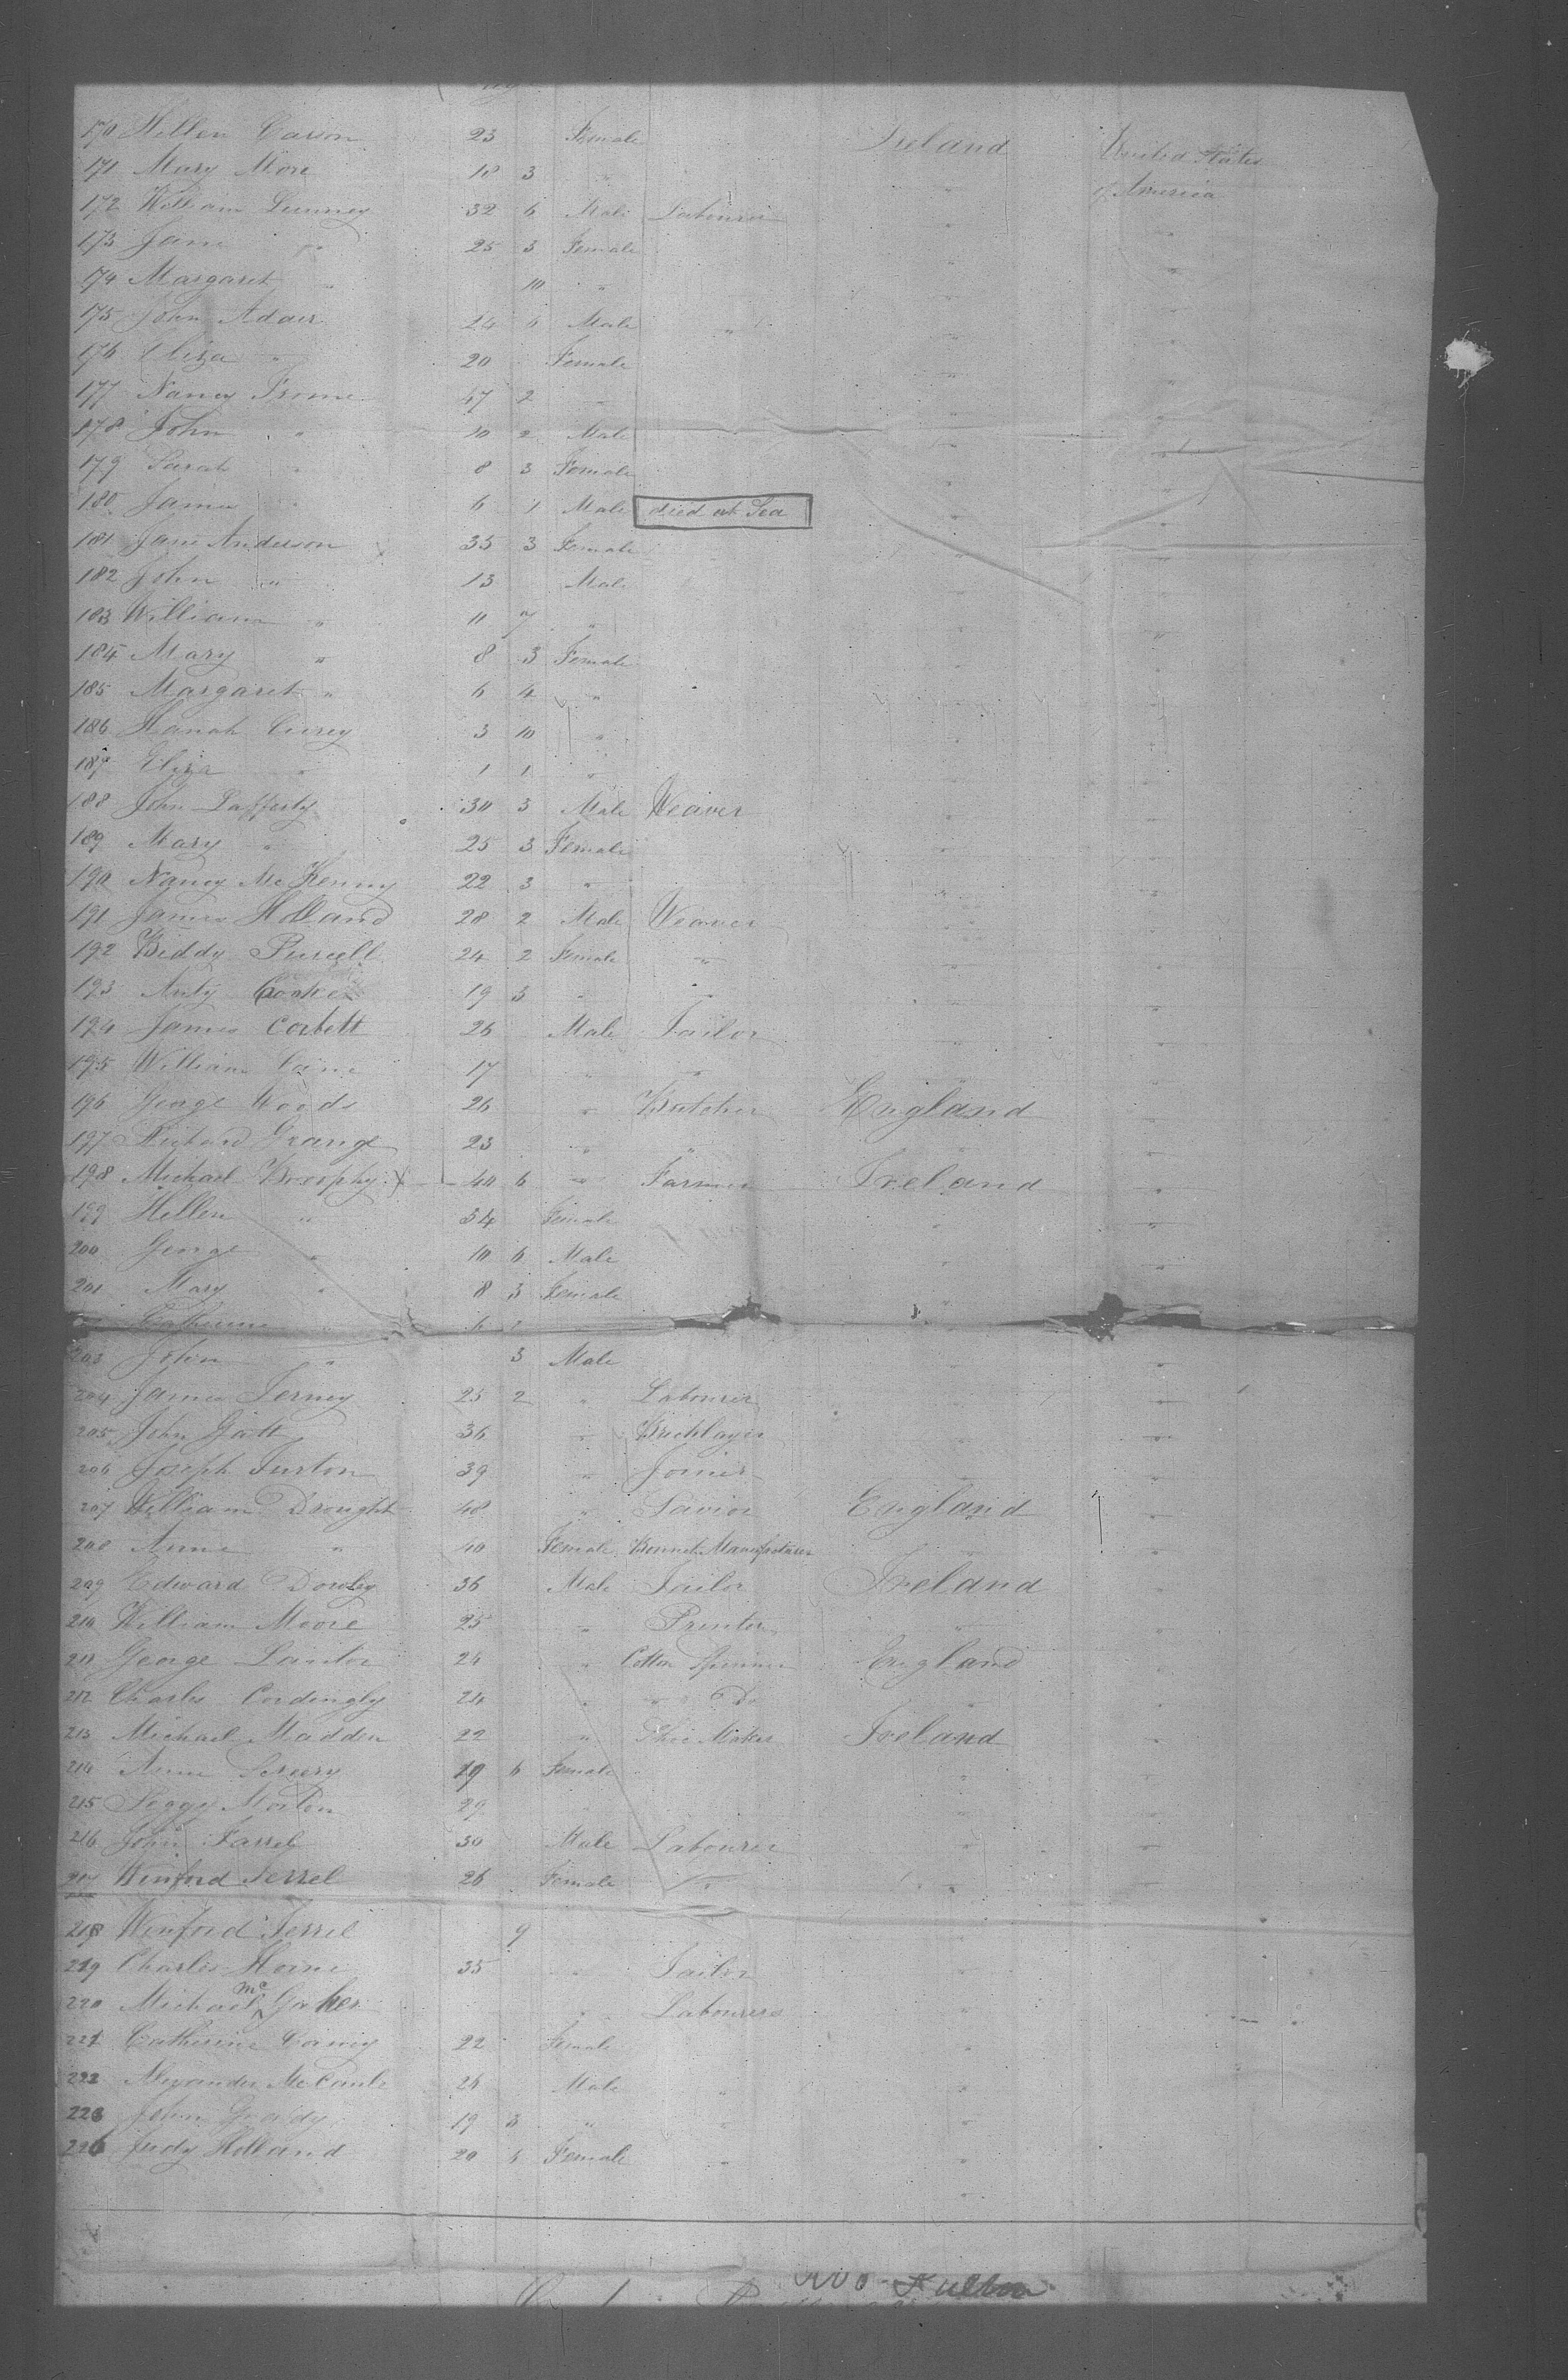 170 Hellen Carson 23 Female Ireland United States
171 Mary More 18 3 " " of America
172 William Lunney 32 6 Male Labourer " "
173 Jane " 25 3 Female " "
174 Margaret " 10 " " "
175 John Adair 24 6 Male " " "
176 Eliza " 20 Female " "
177 Nancy 47 2 " " "
178 John " 10 2 Male " "
179 Sarah " 8 3 Female " "
180 James " 6 1 Male died at Sea " "
181 Jane Anderson 35 3 Female " "
182 John " 13 Male " "
183 William " 11 7 " " "
184 Mary " 8 3 Female " "
185 Margaret " 6 4 " " "
186 Hanah Currey 3 10 " " "
187 Eliza " 1 1 " " "
188 John Lafferty 30 3 Male Weaver " "
189 Mary " 25 3 Female " "
190 Nancy McKenny 22 3 " " "
191 James Holland 28 2 Male Weaver " "
192 Biddy Purcell 24 2 Female " " "
193 Anty Cooke 19 3 " " " "
194 James Corbett 26 Male Tailor " "
195 William 17 " " " "
196 George Woods 26 " Butcher England "
197 Richard Grange 23 " " " "
198 Michael Brophy 40 6 " Farmer Ireland "
199 Hellen " 34 Female " "
200 George " 10 6 Male " "
201 Mary " 8 3 Female " "
Catherine " 6 2
203 John " 3 Male " "
204 James 25 2 " Labourer " "
205 John Gatt 36 " Bricklayer " "
206 Joseph Turton 39 " Joiner " "
207 William Drought 48 " Pavior England "
208 Anne " 40 Female Bonnet Manufacturer " "
209 Edward Dowley 36 Male Tailor Ireland "
210 William Moore 25 " Printer " "
211 George 24 " Cotton Spinner England "
212 Charles Cordingly 24 " " Do " "
213 Michael Madden 22 " Shoe Maker Ireland "
214 Anne 19 6 Female " "
215 Peggy Morton 29 " "
216 John Farrel 30 Male Labourer " "
217 Winford Ferrel 26 Female " "
218 Winford Ferrel 9
219 Charles Horne 35 " Tailor "
220 Michael Mc Gaher " Labourers "
221 Catherine 22 Female "
222 Alexander 24 Male " "
223 John Grady 19 3 " " "
226 Judy Holland 20 6 Female " "